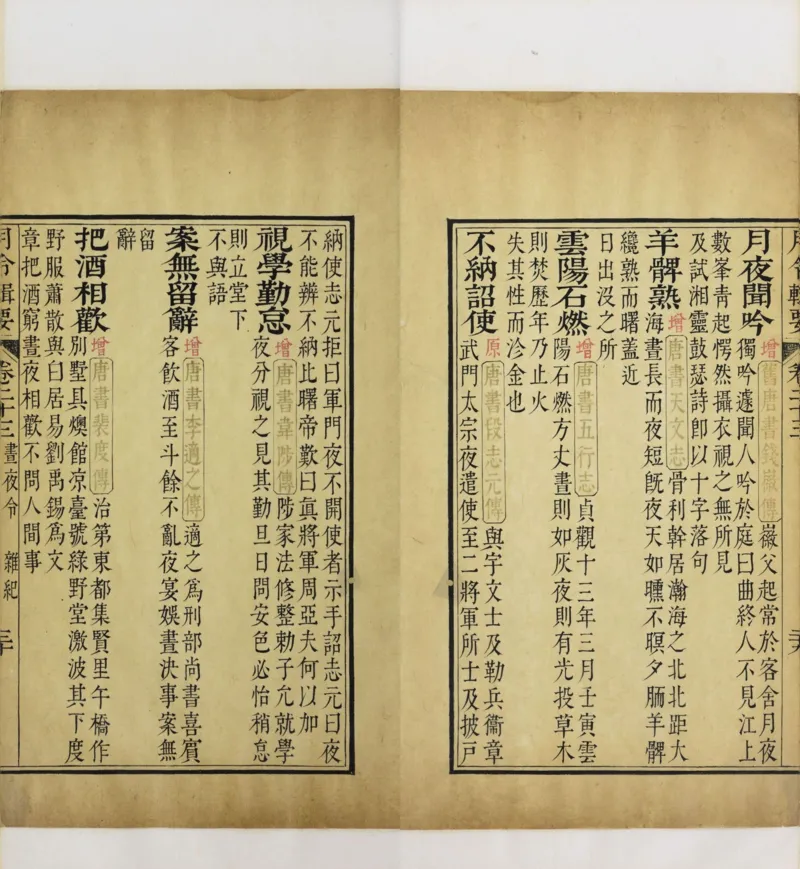 月令輯要 卷二十三
月夜聞吟
增舊唐書錢徽傳徽父起常於客舍月夜
獨吟遽聞人吟於庭曰曲終人不見江上
數峯青起愕然攝衣視之無所見
及試湘靈鼓瑟詩卽以十字落句
羊髀熟
增唐書天文志骨利幹居瀚海之北北距大
海晝長而夜短旣夜天如曛不暝夕胹羊髀
纔熟而曙蓋近
日出沒之所
雲陽石燃
增唐書五行志貞觀十三年三月壬寅雲
陽石燃方丈晝則如灰夜則有光投草木
則焚歷年乃止火
失其性而沴金也
不納詔使
原唐書段志元傳與宇文士及勒兵衞章
武門太宗夜遣使至二將軍所士及披戸
納使志元拒曰軍門夜不開使者示手詔志元曰夜
不能辨不納比曙帝歎曰眞將軍周亞夫何以加
視學勤怠
增唐書韋陟傳陟家法修整勅子允就學
夜分視之見其勤旦日問安色必怡稍怠
則立堂下
不與語
案無留辭
增唐書李適之傳適之爲刑部尚書喜賓
客飲酒至斗餘不亂夜宴娛晝決事案無
留
辭
把酒相歡
增唐書裴度傳治第東都集賢里午橋作
別墅具燠館凉臺號綠野堂激波其下度
野服蕭散與白居易劉禹錫爲文
章把酒窮晝夜相歡不問人間事
月令輯要 卷二十三 晝夜令 雜紀